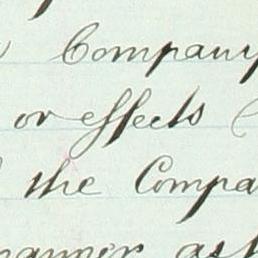 Company
or effects
the Compa
manner as